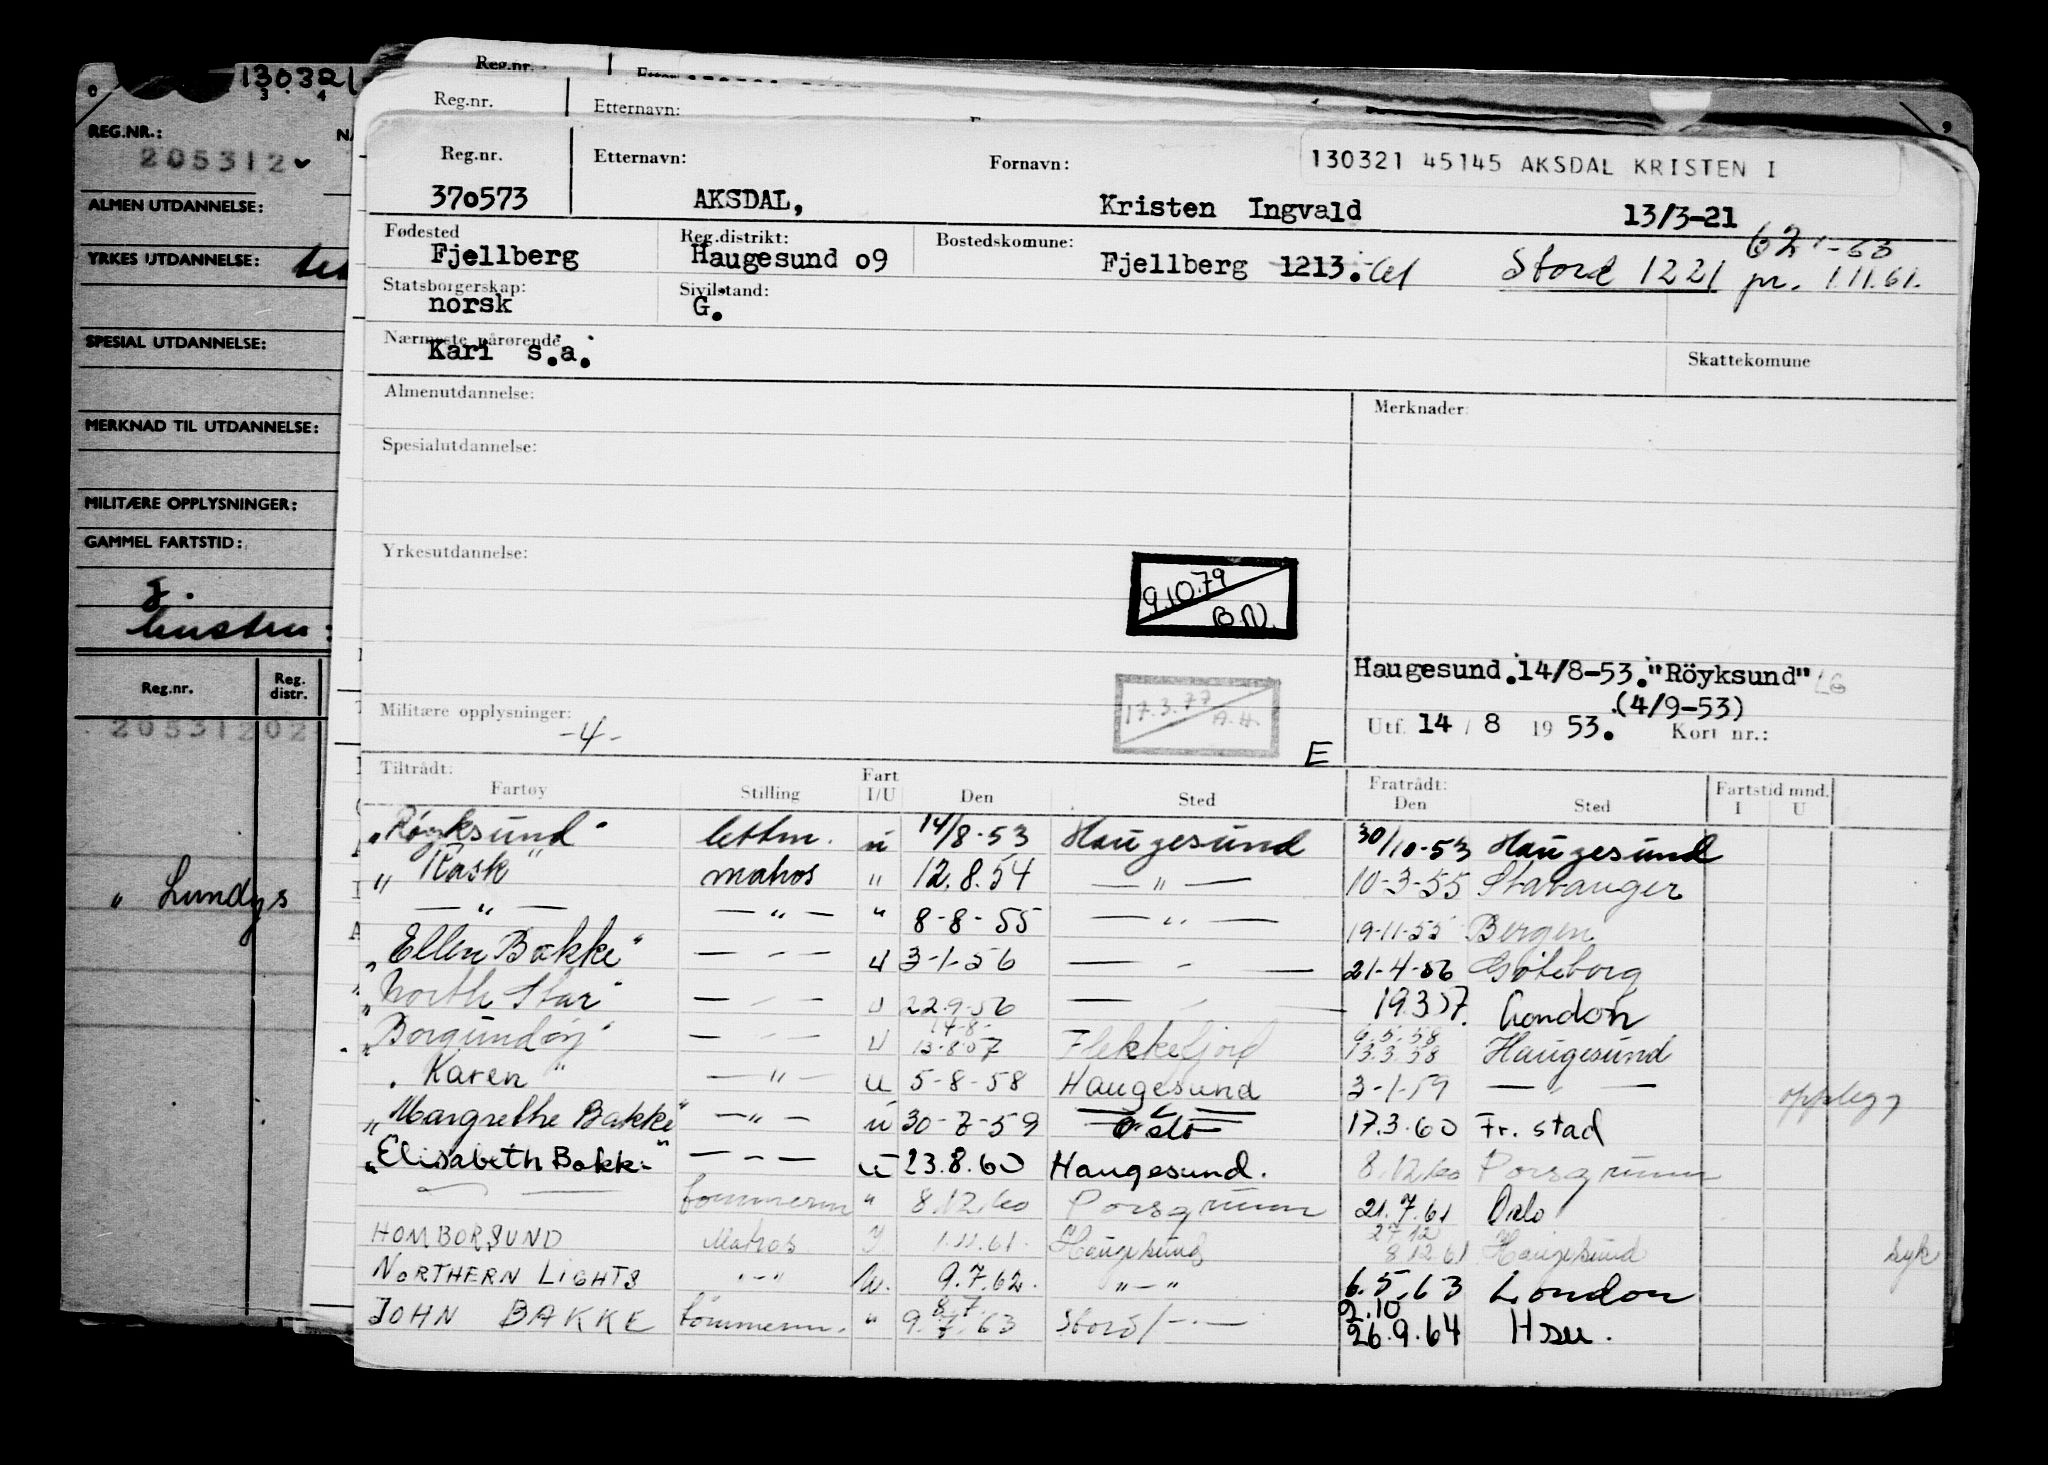 130321
3 4
REG.NR.:
205312
ALMEN UTDANNELSE:
YRKES UTDANNELSE:
SPESIAL UTDANNELSE:
MERKNAD TIL UTDANNELSE:
MILITÆRE OPPLYSNINGER:
GAMMEL FARTSTID:
Reg.nr. Reg. distr.
205312 02
" Lundys
Reg.nr.
Reg.nr. Etternavn:
Reg.nr. Etternavn: Fornavn: 130321 45145 AKSDAL KRISTEN I
370573 AKSDAL, Kristen Ingvald 13/3-21
Fødested Reg.distrikt: Bostedskomune:
Fjellberg Haugesund 09 Fjellberg 1213. Stord 1221 pr. 1.11.61.
Statsborgerskap: Sivilstand:
norsk G.
Nærmeste pårørende
Kari s.a. Skattekomune
Almenutdannelse: Merknader:
Spesialutdannelse:
Yrkesutdannelse:
9.10.79
B.N.
Haugesund.14/8-53."Röyksund"
17.3.77
A.H.
(4/9-53)
Militære opplysninger: Utf. 14 / 8 1953. Kort nr.:
-4-
E
Tiltrådt: Fart Fratrådt: Fartstid mnd.
Fartøy Stilling I/U Den Sted Den Sted I U
"Røyksund" lettm. u 14/8-53 Haugesund 30/10-53 Haugesund
" Rask" matros " 12.8.54 — " — 10-3-55 Stavanger
— " — — " — " 8-8-55 — " — 19-11-55 Bergen
"Ellen Bakke" — - — u 3-1-56 — - — 21-4-56 Göteborg
"North Star" — - — u 22.9.56 — - — 19.3.57. London
14-8-
6.5.58
"Borgundøy" — - — u 13-8-57 Flekkefjord 13.3.58 Haugesund
" Karen " — " — u 5-8-58 Haugesund 3-1-59 — " — opplegg
"Margrethe Bakke" — " — u 30-7-59 Oslo 17.3.60 Fr. stad
"Elisabeth Bakke" — - — u 23.8.60 Haugesund. 8.12.60 Porsgrunn
— — tømmerm " 8.12.60 Porsgrunn 21.7.61 Oslo
27.12
HOMBORSUND Matros I 1.11.61. Haugesund 8.12.61 Haugesund syk
NORTHERN LIGHTS " - " u. 9.7.62. " - " 6.5.63 London
8.7.
2.10
JOHN BAKKE tømmerm. " 9.7.63 Stord / - . - 26.9.64 Hsu.